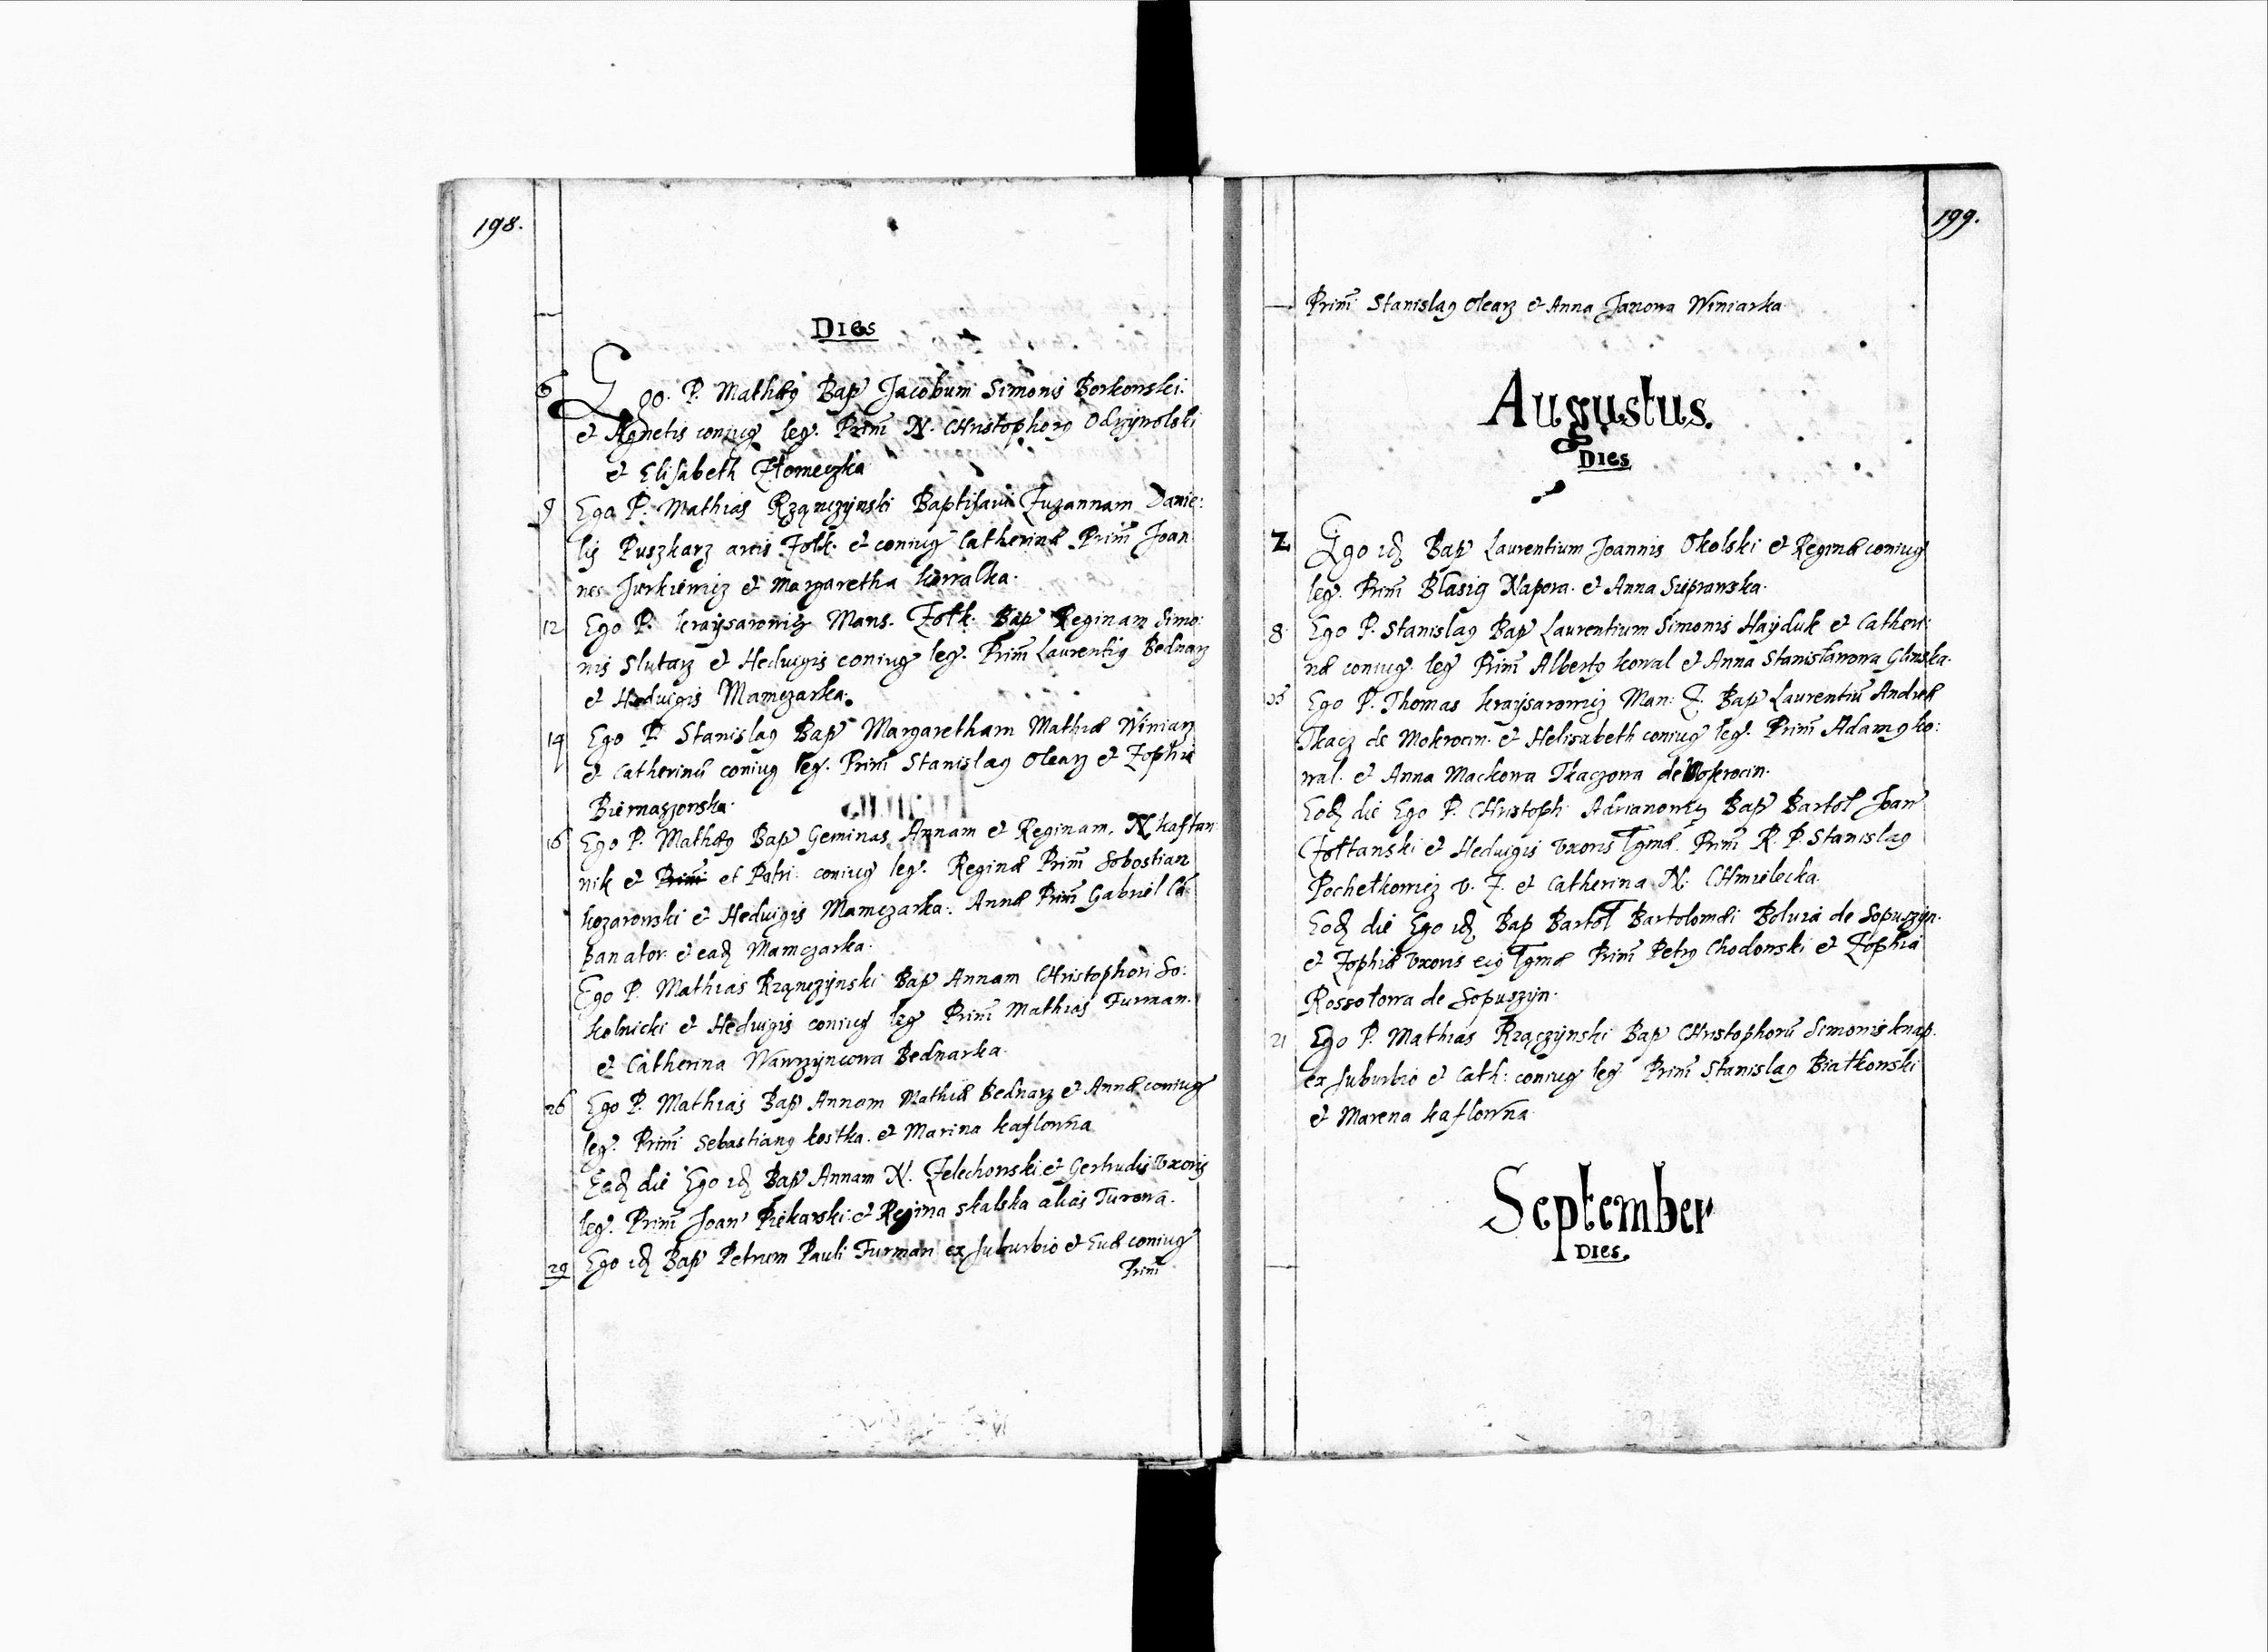 198.
Dies
6 Ego. P. Mathæus Bap Jacobum Simonis Borkowski.
et Agnetis coniug leg. Prim̄ N. CHristophorus Odrzywolski
et Elisabeth Złomeczka
9 Ego P. Mathias Rząnczynski Baptisavi Zuzannam Danie:
lis Puszkarz arcis Zołk. et coniug Catherinæ Prim̄ Joan
nes Jurkiewicz et Margaretha kowalka.
12 Ego P. kraysarowicz Mans. Zołk. Bap Reginam Simo:
nis Slutarz et Hedwigis coniug leg. Prim̄ Laurentius Bednarz
et Hedwigis Mamczarka.
14 Ego P. Stanislaus Bap Margaretham Mathiæ Winiarz
et Catherinæ coniug leg. Prim̄ Stanislaus Olearz et Zophia
Biernaszowska.
16 Ego P. Mathæus Bap Geminas Annam et Reginam. N kaftan:
nik et Patri: coniug leg. Reginæ Prim̄ Sobostian
kozarowski et Hedwigis Mamczarka. Annæ Prim̄ Gabriel Cá:
panator et eadem Mamczarka.
Ego P. Mathias Rząnczynski Bap Annam CHristophori So:
kolnicki et Hedwigis coniug leg Prim̄ Mathias Furman.
et Catherina Wawrzyncowa Bednarka.
26 Ego P. Mathias Bap Annam Mathiæ Bednarz et Annæ coniug
leg. Prim̄ Sebastianus kostka. et Marina kaflowna
Eadem die Ego idem Bap Annam N. Zelechowski et Gertrudis Vxoris
leg. Prim̄ Joan Piekarski et Regina Skalska alias Turowa.
29 Ego idem Bap Petrum Pauli Furman ex suburbio et Euæ coniug
Prim̄
199.
Prim̄ Stanislaus Olearz et Anna Janowa Winiarka
Augustus.
Dies
2 Ego idem Bap Laurentium Joannis Okolski et Reginæ coniug
leg. Prim̄ Blasius Napora. et Anna Sieprawska.
8. Ego P. Stanislaus Bap Laurentium Simonis Hayduk et Catheri:
næ coniug. leg Prim̄ Albertus kowal et Anna Stanisławowa Glinska.
15 Ego P. Thomas kraysarowicz Man: Z. Bap Laurentiū Andreæ
Tkacz de Mokrocin. et Helisabeth coniug leg. Prim̄ Adamus ko:
wal. et Anna Mackowa Tkaczowa de Mokrocin.
Eodem die Ego P. CHristoph. Adrianowicz Bap Bartoł Joan
Zołtanski et Hedwigis Vxoris Lgmæ. Prim̄ R. P. Stanislaus
Pochełkowicz V. Z. et Catherina N. CHmielecka.
Eodem die Ego idem Bap Bartoł Bartolomæi Boluia de Sopuszyn.
et Zophiæ Vxoris eius Lgmæ Prim̄ Petrus Chodowski et Zophia
Rossołowa de Sopuszyn.
21 Ego P. Mathias Rzączynski Bap CHristophorū Simonis knap.
ex suburbio et Cath: coniug leg Prim̄ Stanislaus Białkowski
et Marena kaflowna.
September
Dies.